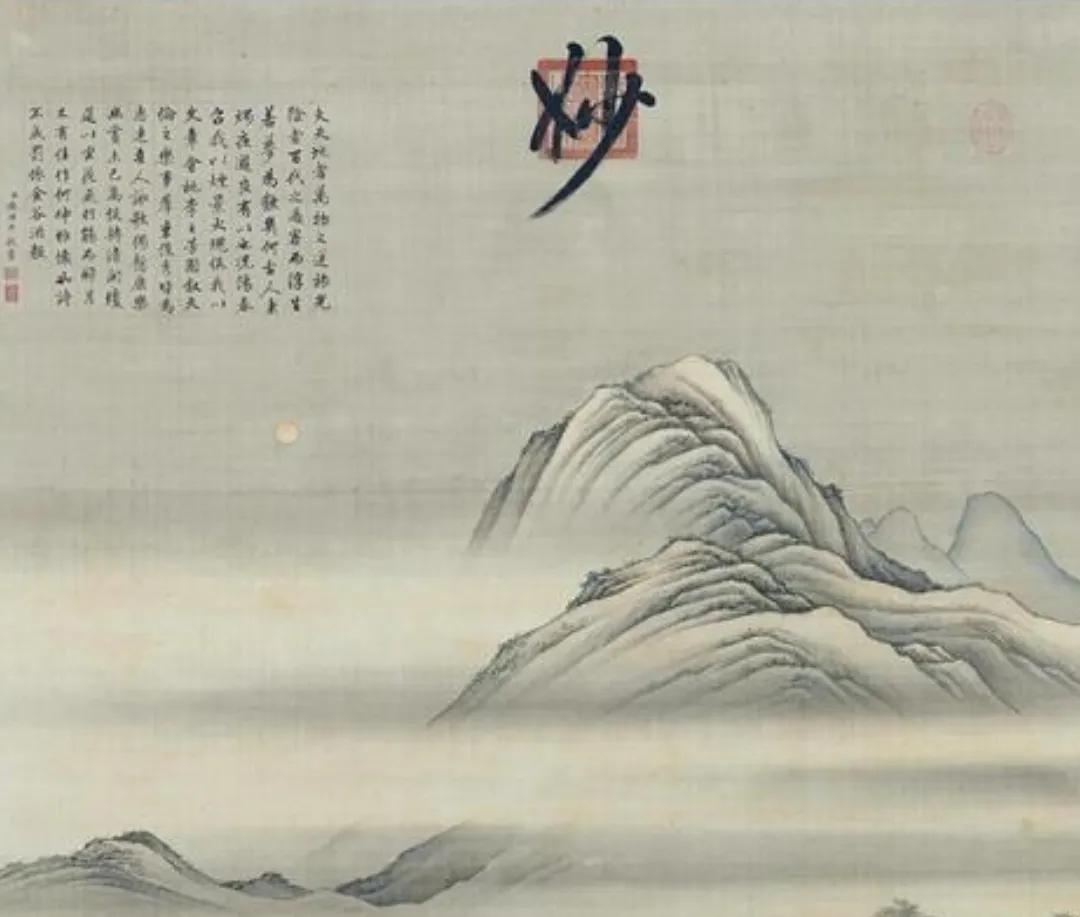 妙
夫天地者萬物之逆旅光
陰者百代之過客而浮生
若夢為歡幾何古人秉
燭夜遊良有以也況陽春
召我以煙景大塊假我以
文章會桃李之芳園敘天
倫之樂事羣季俊秀皆為
惠連吾人詠歌獨慚康樂
幽賞未已高談轉清開瓊
筵以坐花飛羽觴而醉月
不有佳作何伸雅懷如詩
不成罰依金谷酒數